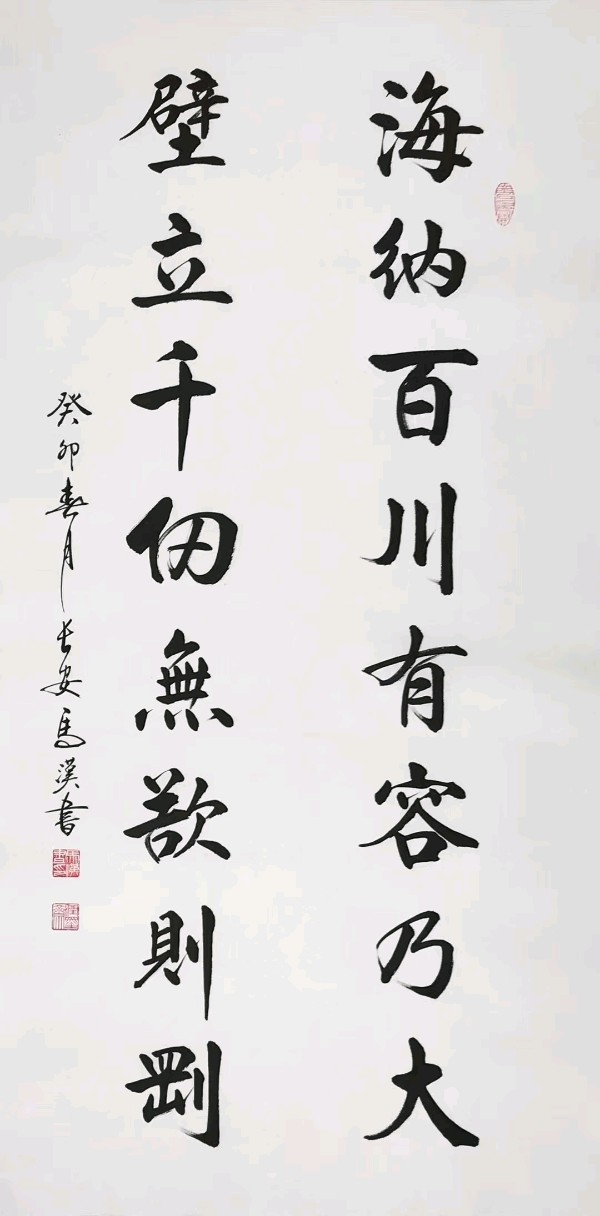 海納百川有容乃大
壁立千仞無欲則剛
癸卯春月长安馬漢書